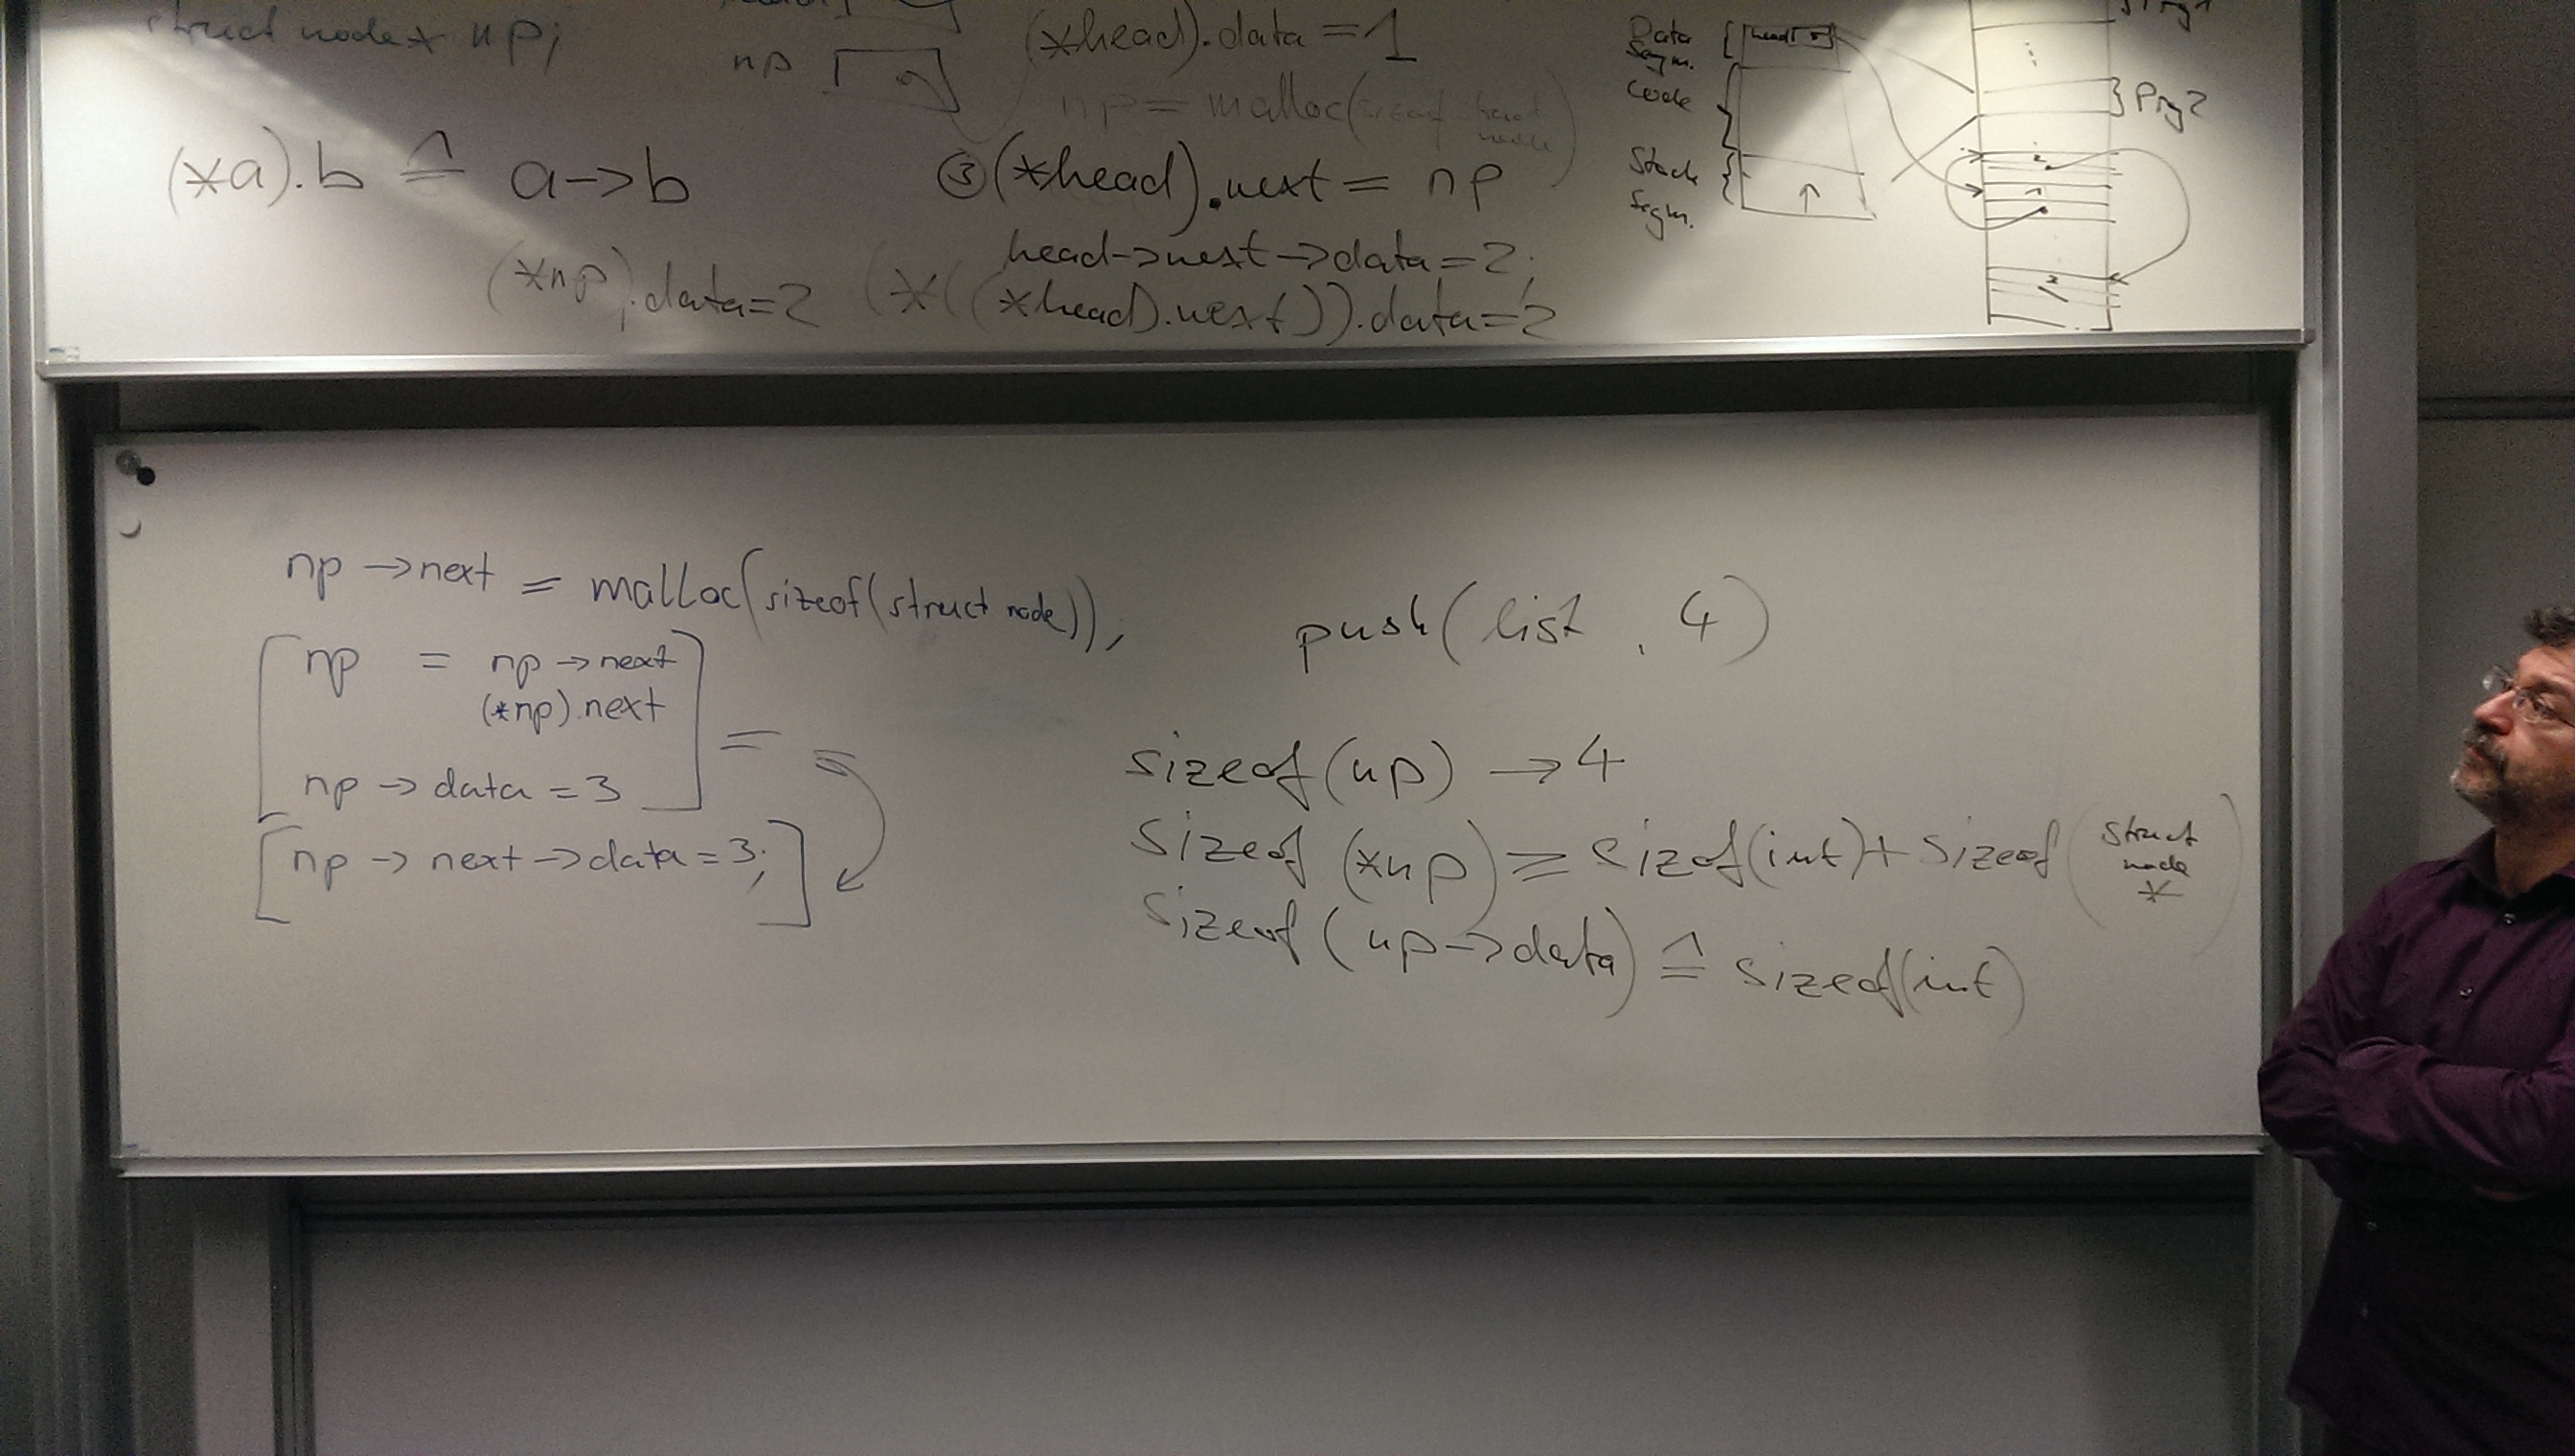 struct node* np;
np
(*head).data = 1
np = malloc(sizeof struct
node)
(*a).b ≙ a->b
③ (*head).next = np
head->next->data=2;
(*np).data=2
(*((*head).next)).data=2
Data
Segm.
head
Code
Stack
Segm.
Prg2
np ->next = malloc(sizeof(struct node));
np = np->next
(*np).next
np -> data = 3
=
np -> next->data=3;
push(list , 4)
sizeof(np) -> 4
sizeof (*np) >= sizeof(int)+sizeof(struct
node
*)
sizeof(np->data) ≙ sizeof(int)